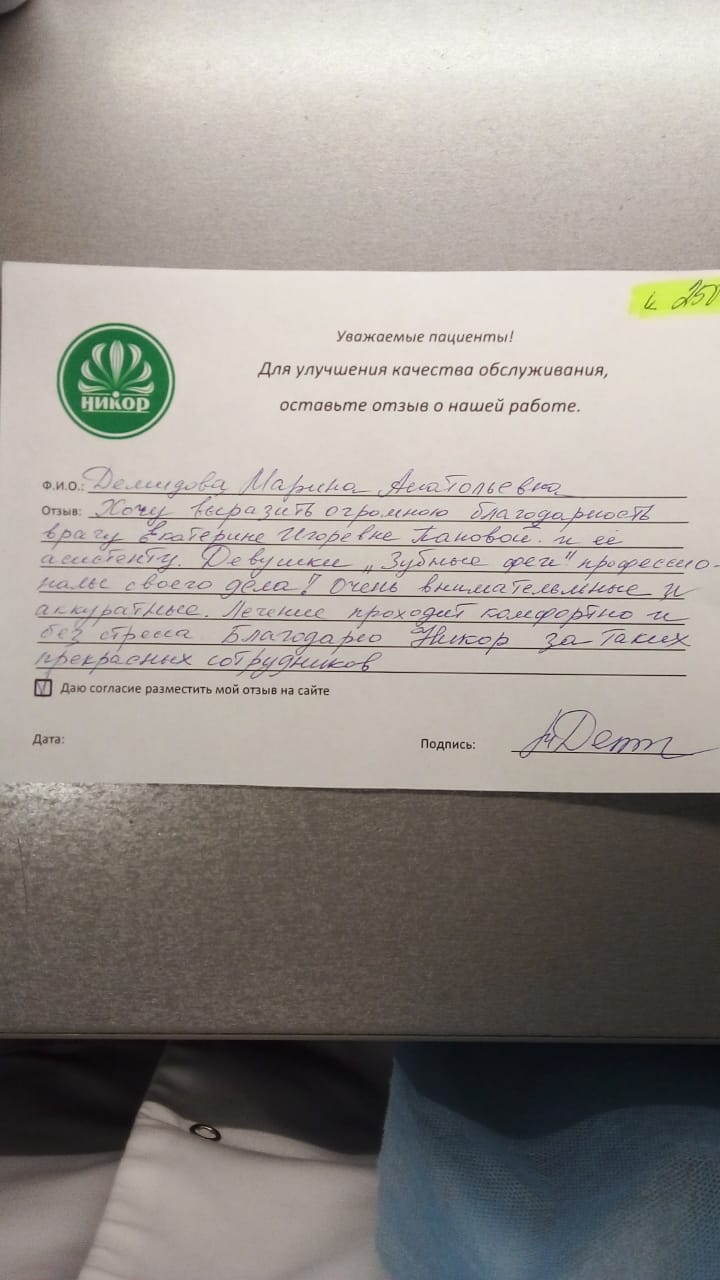 к 250
Уважаемые пациенты!
Для улучшения качества обслуживания,
оставьте отзыв о нашей работе.
НИКОР
Ф.И.О.: Демидова Марина Анатольевна
Отзыв: Хочу выразить огромною благодарность
врачу Екатерине Игоревне Пановой. и её
асистенту. Девушки „Зубные феи" профессио-
налы своего дела! Очень внимательные и
аккуратные. Лечение проходит комфортно и
без стресса Благодарю Никор за таких
прекрасных сотрудников
Даю согласие разместить мой отзыв на сайте
Дата:
Подпись: